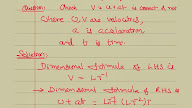 Question: Check V = u + at is correct or not
Where U, V are velocities,
a is acceleration
and t is time.
Solution:
Dimensional formula of LHS is
V = LT⁻¹
→ Dimensional formula of RHS is
u + at = LT⁻¹ (LT⁻²) T